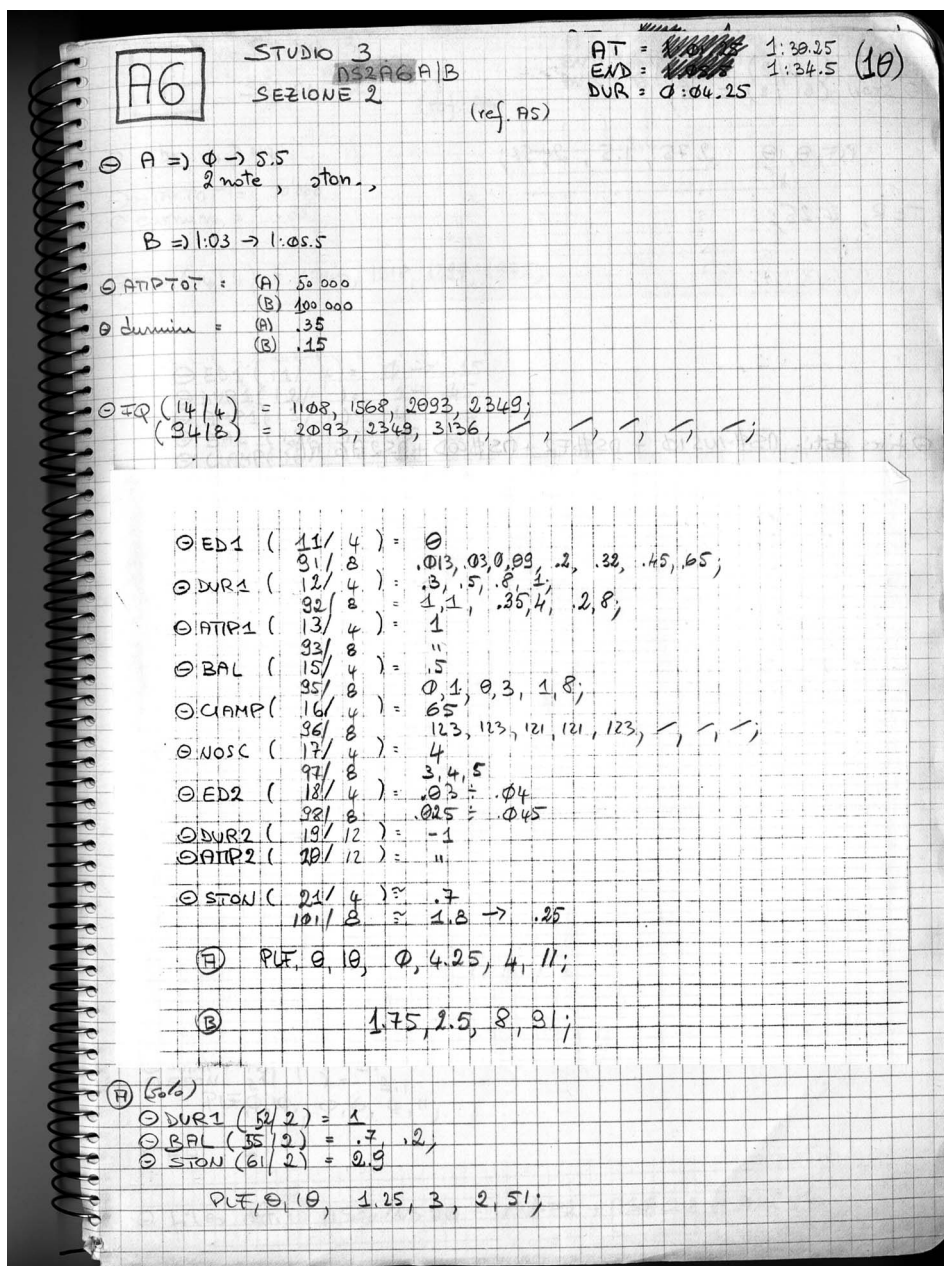 A6
STUDIO 3
DS2A6 A|B
SEZIONE 2
(ref. A5)
AT = 1:30.25
END = 1:34.5
DUR = Ø:Ø4.25
(1Θ)
Θ A => Ø -> 5.5
2 note, ston.,
B => 1:03 -> 1:Ø5.5
Θ ATIPTOT : (A) 50 000
(B) 100 000
Θ durmin = (A) .35
(B) .15
Θ FQ (14/4) = 11Ø8, 1568, 2Θ93, 2349;
(94/8) = 2Θ93, 2349, 3136, ⁄, ⁄, ⁄, ⁄, ⁄;
Θ ED1 ( 11/ 4 ) = Θ
91/ 8 .Ø13, .03, 0,09, .2, .32, .45, .65;
Θ DUR1 ( 12/ 4 ) = .3, .5, .8, 1;
92/ 8 = 1,1, .35,4, .2,8;
Θ ATIP1 ( 13/ 4 ) = 1
93/ 8 "
Θ BAL ( 15/ 4 ) = .5
95/ 8 Ø,1, Θ,3, 1,8;
Θ CIAMP ( 16/ 4 ) = 65
96/ 8 123, 123, 121, 121, 123, ⁄, ⁄, ⁄;
Θ NOSC ( 17/ 4 ) = 4
97/ 8 3,4,5
Θ ED2 ( 18/ 4 ) = .Θ3 ÷ .Ø4
98/ 8 .Θ25 ÷ .Ø45
Θ DUR2 ( 19/ 12 ) = -1
Θ ATIP2 ( 2Θ/ 12 ) = "
Θ STON ( 21/ 4 ) ≅ .7
1Ø1/ 8 ≅ 1.8 -> .25
(A) PLF, Θ, 1Θ, Ø, 4.25, 4, 11;
(B) 1.75, 2.5, 8, 91;
(A) (solo)
Θ DUR1 (52/2) = 1
Θ BAL (55/2) = .7, .2;
Θ STON (61/2) = 2.9
PLF, Θ, 1Θ, 1.25, 3, 2, 51;